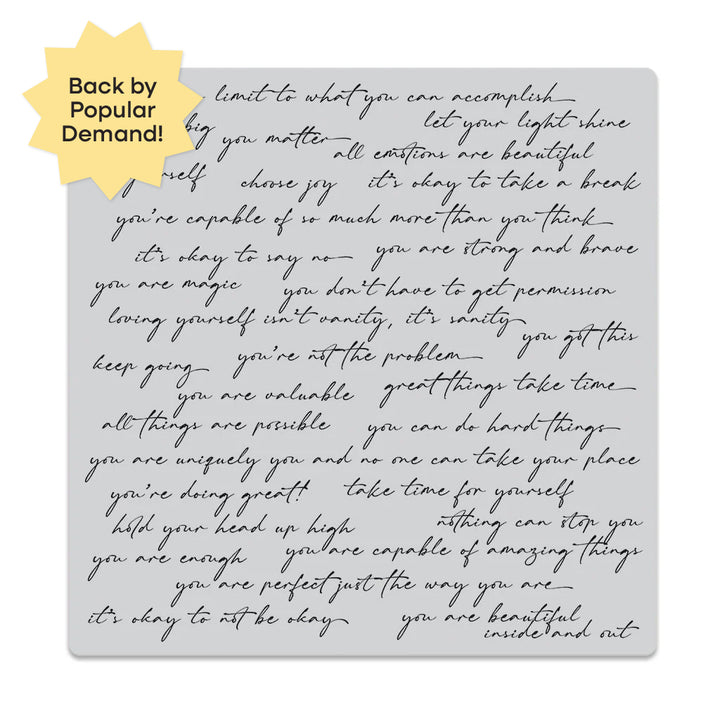 Back by
Popular
Demand!
limit to what you can accomplish
big you matter let your light shine
all emotions are beautiful
choose joy it's okay to take a break
you're capable of so much more than you think
it's okay to say no you are strong and brave
you are magic you don't have to get permission
loving yourself isn't vanity, it's sanity
you got this
keep going you're not the problem
you are valuable great things take time
all things are possible you can do hard things
you are uniquely you and no one can take your place
you're doing great! take time for yourself
hold your head up high nothing can stop you
you are enough you are capable of amazing things
you are perfect just the way you are
it's okay to not be okay you are beautiful
inside and out